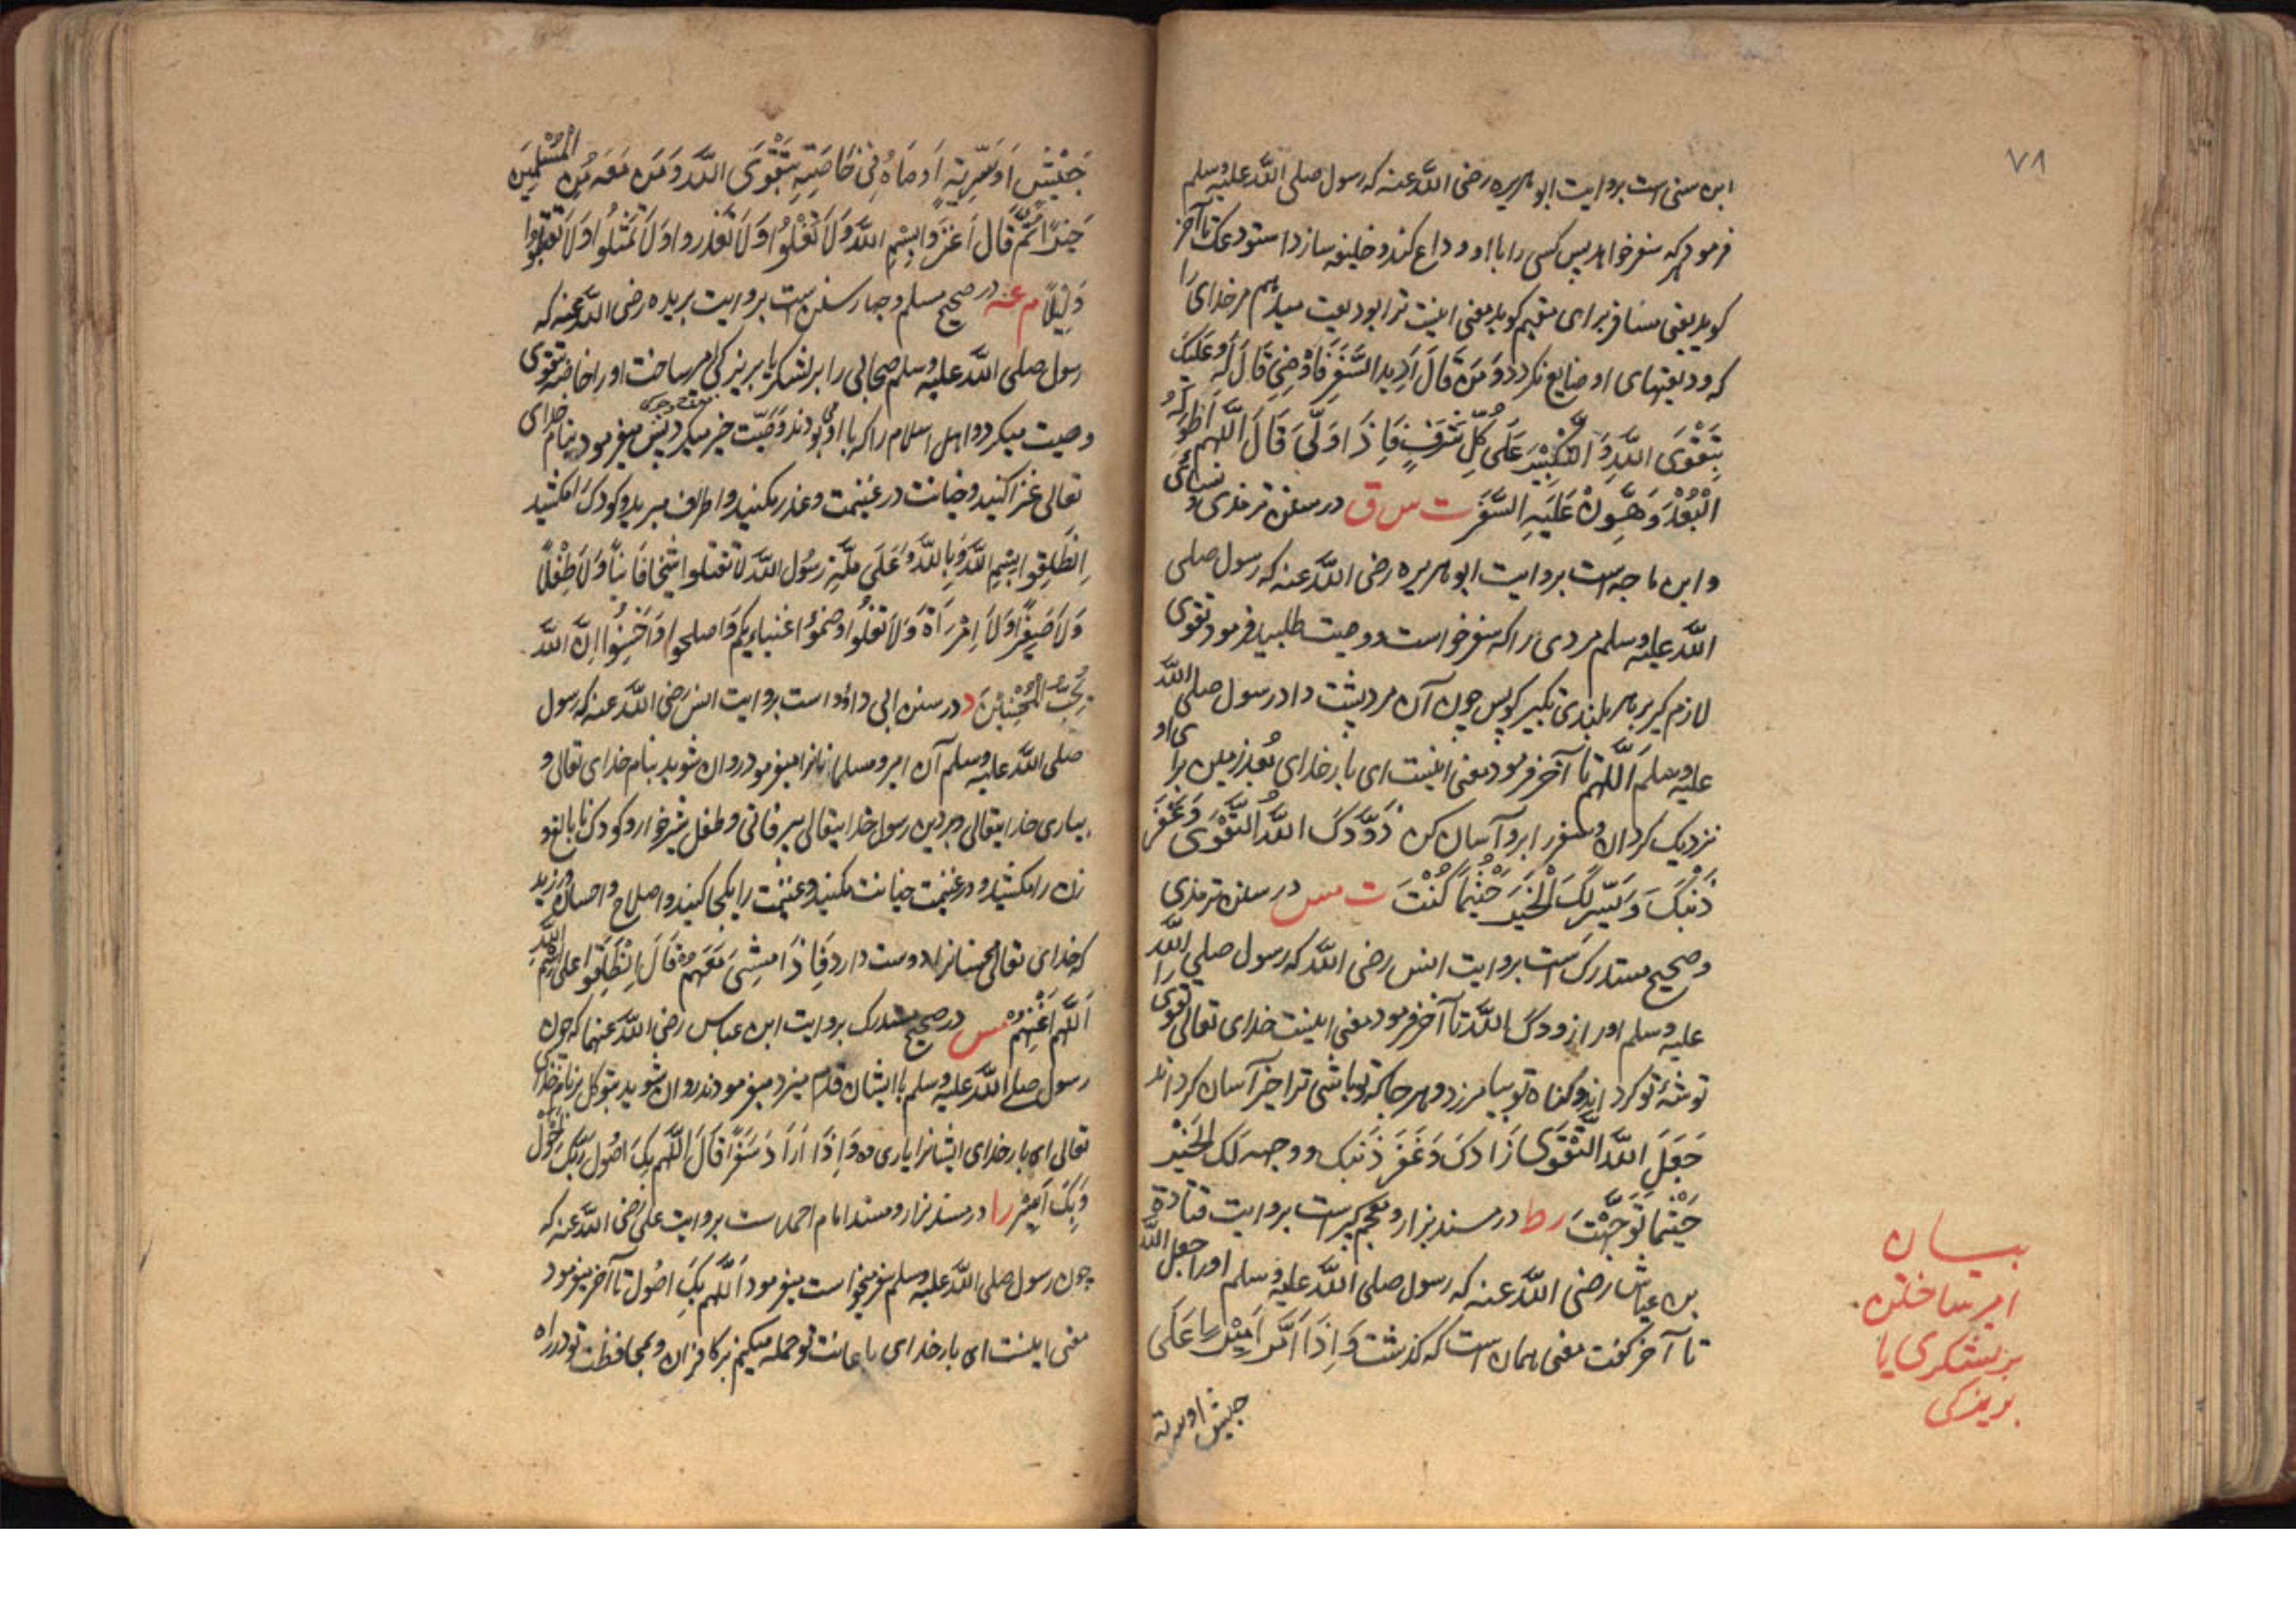 ٧٨
ابن سنی است بروایت ابو هریره رضی الله عنه که رسول صلی الله علیه وسلم
فرمود هرکه سفر خواهد پس کسی را با او وداع کند و خلیفه سازد استودعک تا آخر
کوید یعنی مسافر برای مقیم کوید یعنی اینست ترا بودیعت میدهم مر خدای را
که ودیعتهای او ضایع نکردد وَمَن قَالَ اُرِید السَّفَرَ فَاَوْصِنِی قَالَ لَهُ وعَلَیکَ
بِتَقْوَی اللهِ وَ التَّکبِیْرَ عَلَی کُلِّ شَرَفٍ فَاِذَا وَلَّی قَالَ اللّهم اَطْوِ لَهُ
الْبُعْدَ وَهَوِّنْ عَلَیهِ السَّفَرَ ت س ق در سنن ترمذی و نسائی
و ابن ماجه است بروایت ابو هریره رضی الله عنه که رسول صلی
الله علیه وسلم مردی را که سفر خواست و وصیت طلبید فرمود تقوی
لازم کیر بر هر بلندی تکبیر کو پس چون آن مرد پشت داد رسول صلی الله
علیه وسلم اللّهم تا آخر فرمود معنی اینست ای بار خدای بُعد زمین برای او
نزدیک کردان و سفر را برو آسان کن زَوَّدَکَ اللهُ التَّقْوَی وَغَفَرَ
ذَنْبَکَ وَیَسَّرَ لَکَ الْخَیرَ حَیْثُمَا کُنْتَ ت مس در سنن ترمذی
و صحیح مستدرک است بروایت انس رضی الله که رسول صلی الله
علیه وسلم او را زودک الله تا آخر فرمود معنی اینست خدای تعالی تقوی را
توشۀ تو کرداند و کناه تو بیامرزد و هر جا که تو باشی ترا خیر آسان کرداند
جَعَلَ اللهُ التَّقْوَی زَادکَ وَغَفَرَ ذَنبک و وجه لَکَ الخَیْرَ
حَیْثُمَا تَوَجَّهْتَ ر ط در مسند بزار و معجم کبیر است بروایت قتادة
بن عیاش رضی الله عنه که رسول صلی الله علیه وسلم او را جعل الله
تا آخر کفت معنی همان است که کذشت وَاِذَا اَمَّرَ اَمِیْرًا عَلَی
جیش او سریة
بیان
امیر ساختن
بر لشکری یا
بریزکی
جَیْشٍ اَو سَرِیَّةٍ اَوصَاهُ فِی خَاصَّتِهِ بِتَقْوَی اللهِ وَمَن مَعَهُ مِن الْمُسْلِمِینَ
خَیْرًا ثُمَّ قَالَ اُغْزُوا بِسْمِ اللهِ وَلَا تَغُلُّوا وَلَا تَغْدِروا وَلَا تَمْثُلُوا وَلَا تَقتلُوا
وَلِیْدًا م عه در صحیح مسلم و چهار سنن است بروایت بریده رضی الله عنه که
رسول صلی الله علیه وسلم صحابی را بر لشکر یا بر یزکی امیر ساخت او را خاصه بتقوی
وصیت میکرد و اهل اسلام را که با او بودند وصیت خیر میکرد پس میفرمود بنام خدای
تعالی غزا کنید و خیانت در غنیمت و غدر مکنید و اطراف مبرید و کودک را مکشید
اِنطَلِقُوا بِسْمِ اللهِ وَبِاللهِ وَعَلَی مِلَّةِ رَسُولِ اللهِ لَا تَقتلوا شَیخًا فَانِیًا وَلَا طِفْلًا
وَلَا صَغِیرًا وَلَا اِمْرَأةً وَلَا تَغُلُّوا وضُمُّوا غنائمکُم وَاصلحوا وَاَحْسِنُوا اِنَّ اللهَ
یُحِبُّ الْمُحْسِنِیْنَ د در سنن ابی داؤد است بروایت انس رضی الله عنه که رسول
صلی الله علیه وسلم آن امیر و مسلمانانرا میفرمود روان شوید بنام خدای تعالی و
بیاری خدایتعالی و بر دین رسول خدایتعالی پیر فانی و طفل شیرخوار و کودک نابالغ و
زن را مکشید و در غنیمت خیانت مکنید و غنیمت را یکجا کنید و اصلاح و احسان ورزید
که خدای تعالی محسنانرا دوست دارد فَاِذَا مشی مَعَهُمْ قَالَ اِنْطَلِقُوا علی اسم الله
اَللّهم اَعِنْهُمْ مس در صحیح مستدرک بروایت ابن عباس رضی الله عنهما که چون
رسول صلی الله علیه وسلم با ایشان قدم میزد میفرمودند روان شوید بتوکل بر نام خدای
تعالی ای بار خدای ایشانرا یاری ده وَاِذَا اَرَادَ سَفَرًا قَالَ اللّهم بِکَ اَصُولُ وَبِکَ اَحُولُ
وَبِکَ اَسِیْرُ ر ا در مسند بزار و مسند امام احمد است بروایت علی رضی الله عنه که
چون رسول صلی الله علیه وسلم سفر میخواست میفرمود اَللّهم بِکَ اَصُول تا آخر میفرمود
معنی اینست ای بار خدای باعانت تو حمله میکنیم بر کافران و بمحافظت تو در راه